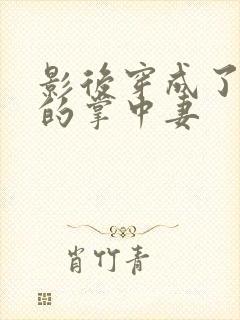 影後穿成了
的掌中妻
肖竹青